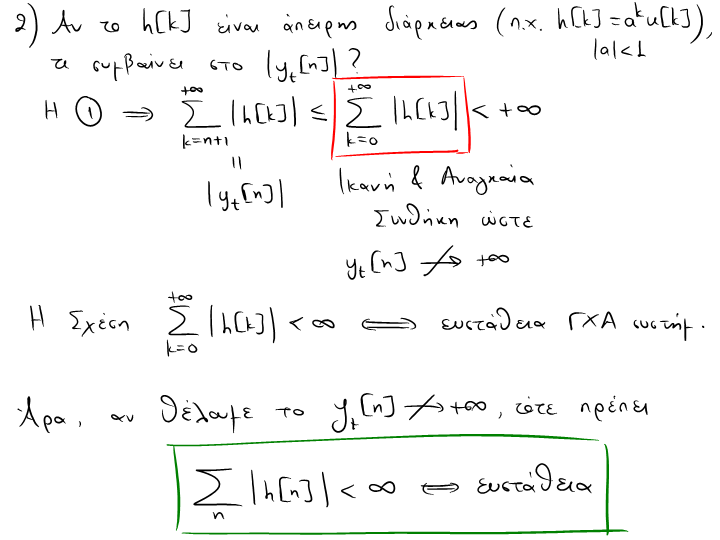 2) Αν το h[k] είναι άπειρης διάρκειας (π.χ. h[k]=a^k u[k]),
|a|<1
τι συμβαίνει στο |y_t[n]| ?
Η ① ⟹ ∑_{k=n+1}^{+∞} |h[k]| ≤ ∑_{k=0}^{+∞} |h[k]| < +∞
=
|y_t[n]| Ικανή & Αναγκαία
Συνθήκη ώστε
y_t[n] ↛ +∞
Η Σχέση ∑_{k=0}^{+∞} |h[k]| < ∞ ⟺ ευστάθεια ΓΧΑ συστήμ.
Άρα, αν θέλαμε το y_t[n] ↛ +∞, τότε πρέπει
∑_n |h[n]| < ∞ ⟺ ευστάθεια